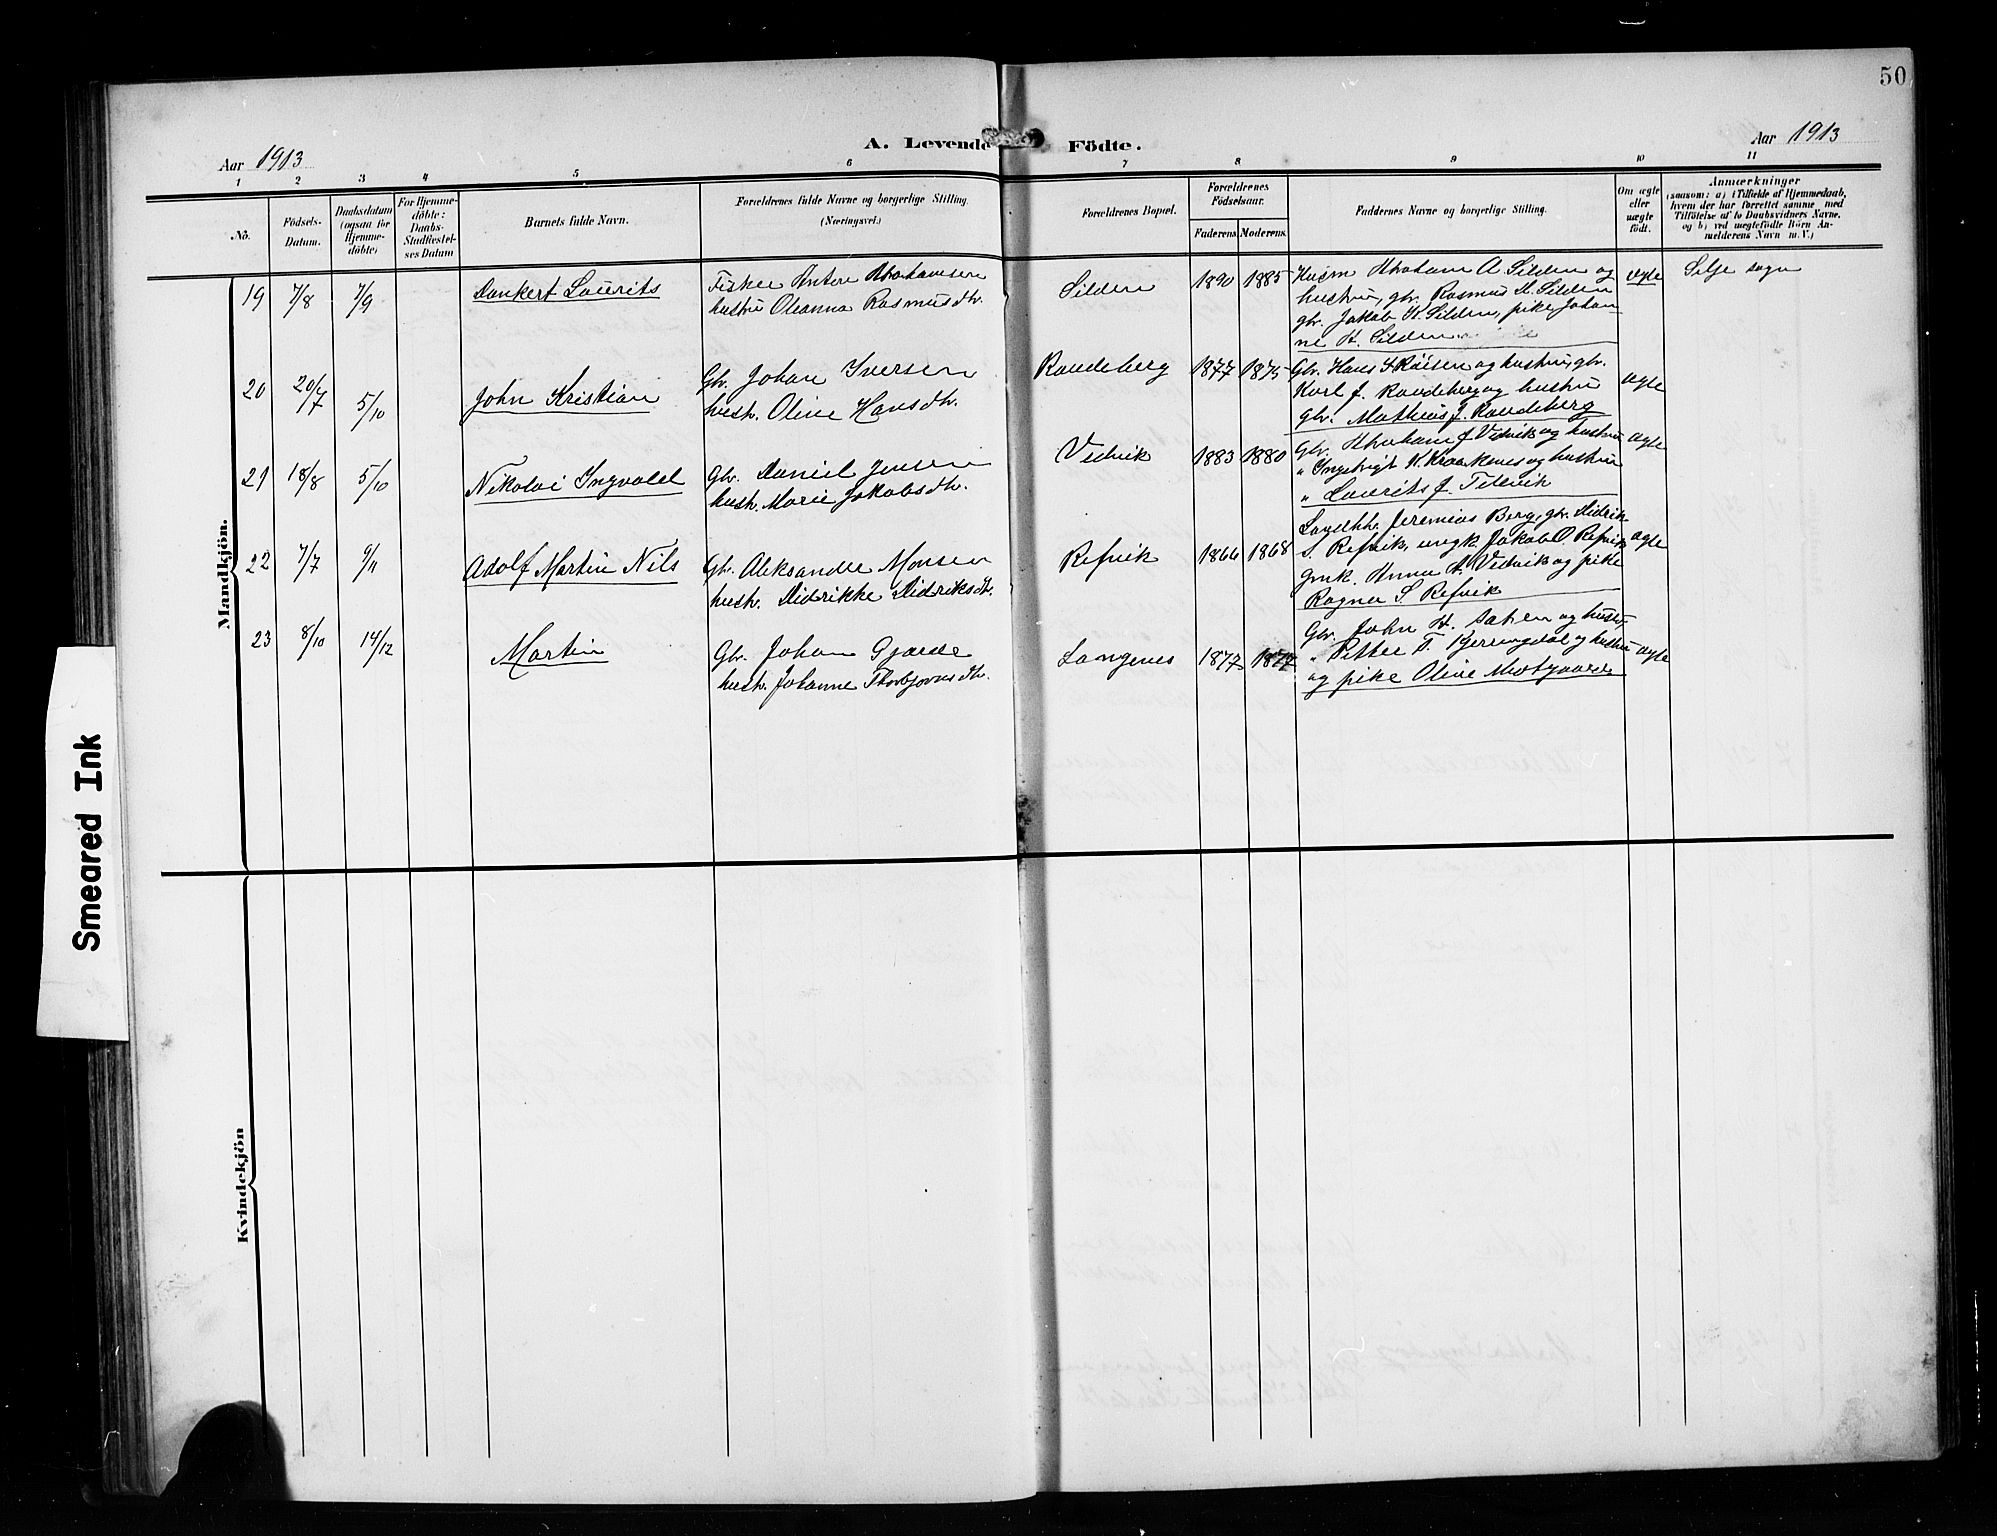 50
Aar 1913
A. Levende Födte.
Aar 1913
1 2 3 4 5 6 7 8 9 10 11
No.
Födsels-
Datum.
Daabsdatum
(ogsaa for
Hjemme-
döbte)
For Hjemme-
döbte:
Daabs-
Stadfæstel-
ses Datum
Barnets fulde Navn.
Forældrenes fulde Navne og borgerlige Stilling.
(Næringsvei.)
Forældrenes Bopæl.
Forældrenes
Födselsaar.
Faderens. Moderens.
Faddernes Navne og borgerlige Stilling.
Om ægte
eller
uægte
födt.
Anmærkninger
(saasom: a) i Tilfælde af Hjemmedaab,
hvem der har forrettet samme, med
Tilföielse af to Daabsvidners Navne,
og b) ved uægtefödte Börn An-
melderens Navn m. V.)
Mandkjön.
19 7/8 7/9 Dankert Laurits
Fisker Anton Abrahamsen
hustru Oleanna Rasmusdtr.
Silden 1890 1885
Husm Abraham A Silden og
hustru, gbr. Rasmus A. Silden
gbr. Jakob K. Silden, pike Johan-
ne A. Silden
ægte Selje sogn
20 20/7 5/10 John Kristian
Gbr. Johan Iversen
hustr. Oline Hansdtr.
Raudeberg 1877 1875
Gbr. Hans og hustru, gbr.
Karl J. Raudeberg og hustru
gbr. Mathias J. Raudeberg
ægte
21 18/8 5/10 Nikolai Ingvald
Gbr. Daniel Jensen
hustr. Marie Jakobsdtr.
Vedvik 1883 1880
Gbr. Abraham J Vedvik og hustru
" Ingebrigt K. Kraakenes og hustru
" Laurits J.
ægte
22 7/7 9/11 Adolf Martin Nils
Gbr. Aleksander Monsen
hustr. Didrikke Didriksdtr.
Refvik 1866 1868
Landhh. Jeremias Berg, gbr. Didrik
S. Refvik, ungk. Jakob O Refvik
gmk. Anna A. Vedvik og pike
Ragna S. Refvik
ægte
23 8/10 14/12 Martin
Gbr. Johan Gjærde
hustr. Johanne Thorbjørnsdtr.
Langenes 1877 1877
Gbr. John H. og hustr,
" Petter T. og hustru
og pike Oline
ægte
Kvindekjön
Smeared Ink